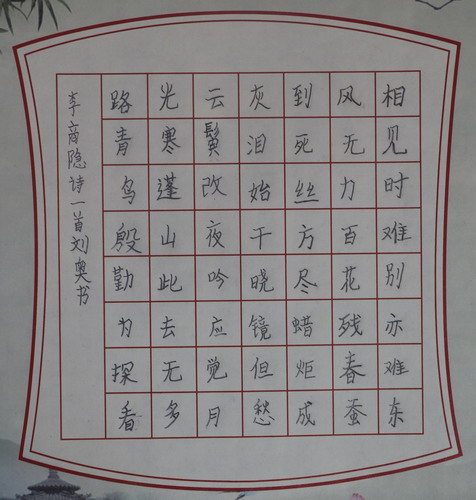 相见时难别亦难东
风无力百花残春蚕
到死丝方尽蜡炬成
灰泪始干晓镜但愁
云鬓改夜吟应觉月
光寒蓬山此去无多
路青鸟殷勤为探看
李商隐诗一首刘奥书